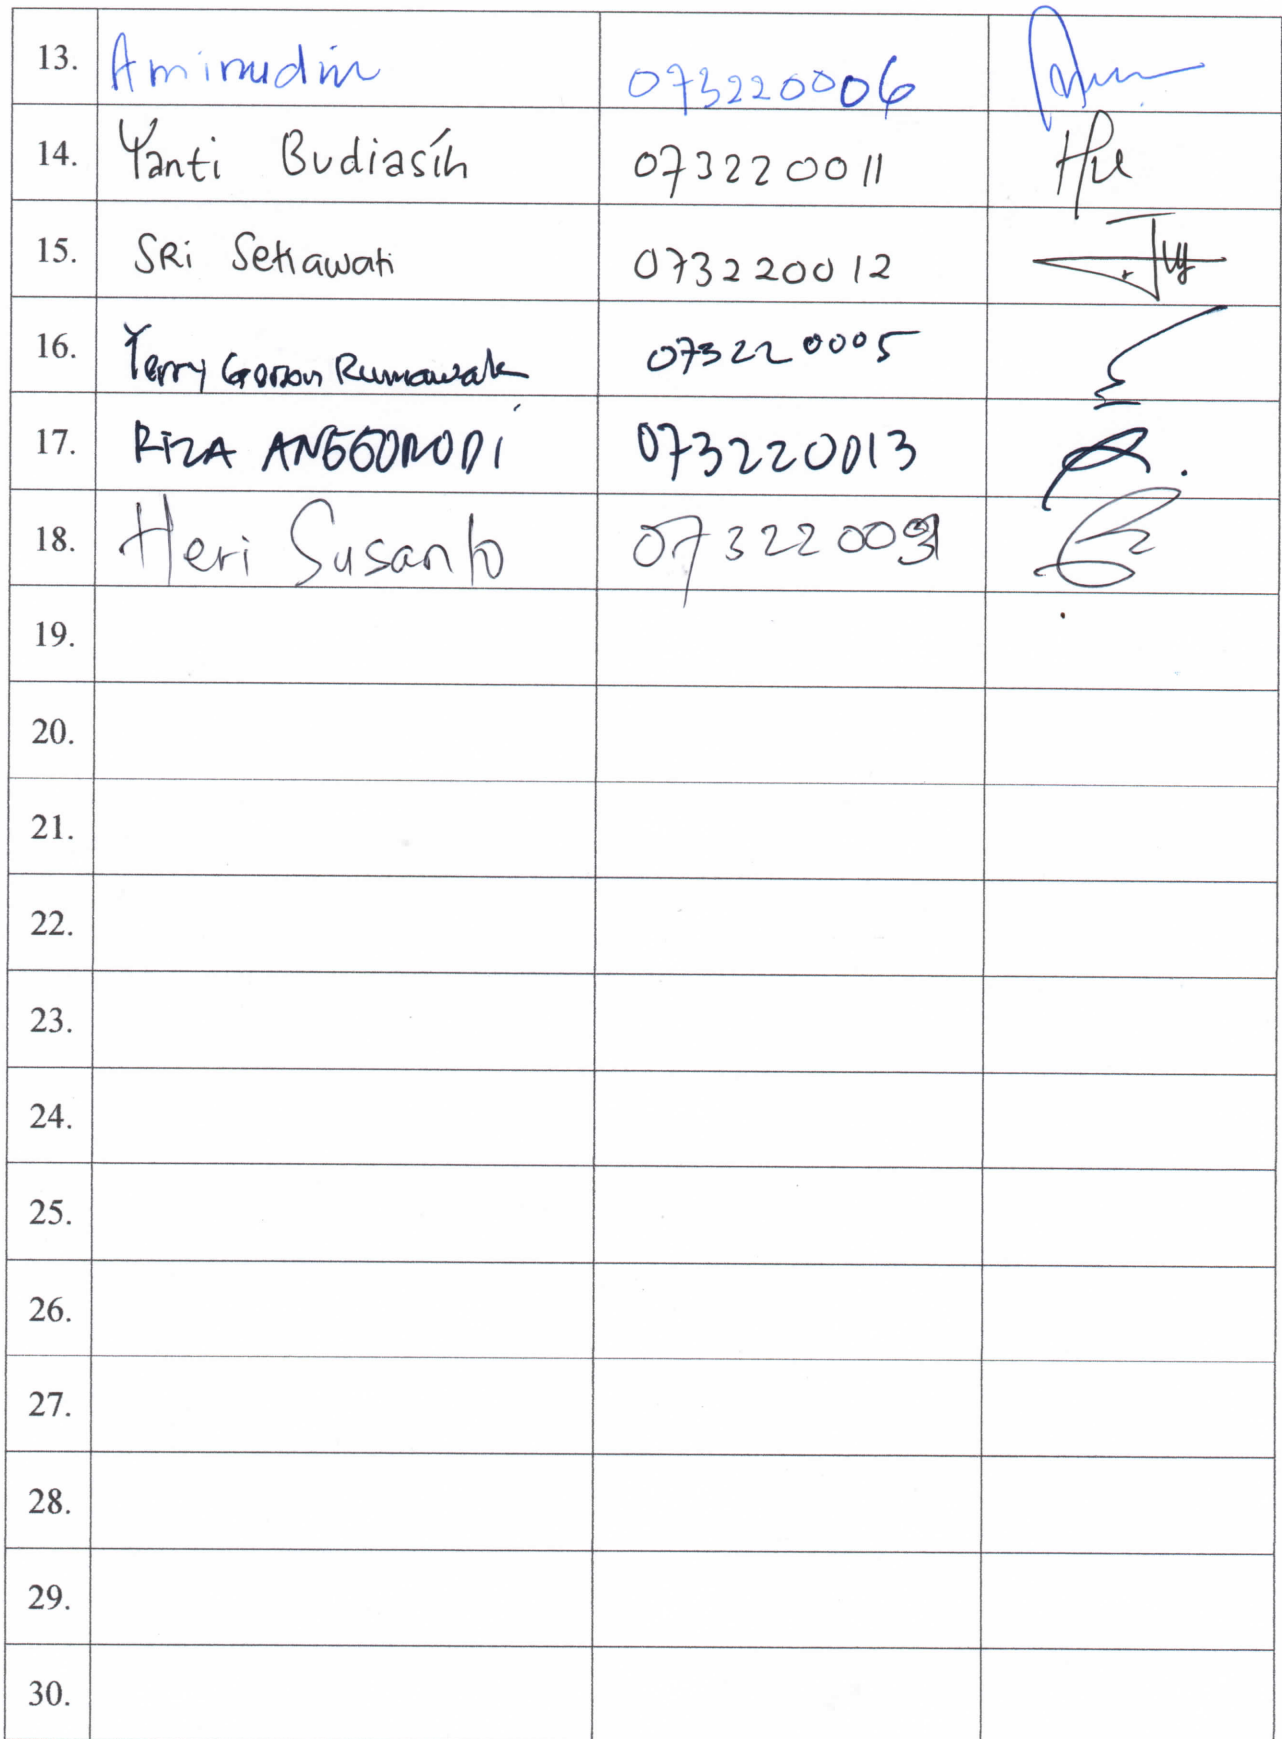 13. Amirudin 073220006
14. Yanti Budiasih 073220011
15. SRi Setiawati 073220012
16. Yerry Rumawak 073220005
17. RIZA ANGGORODI 073220013
18. Heri Susanto
19.
20.
21.
22.
23.
24.
25.
26.
27.
28.
29.
30.